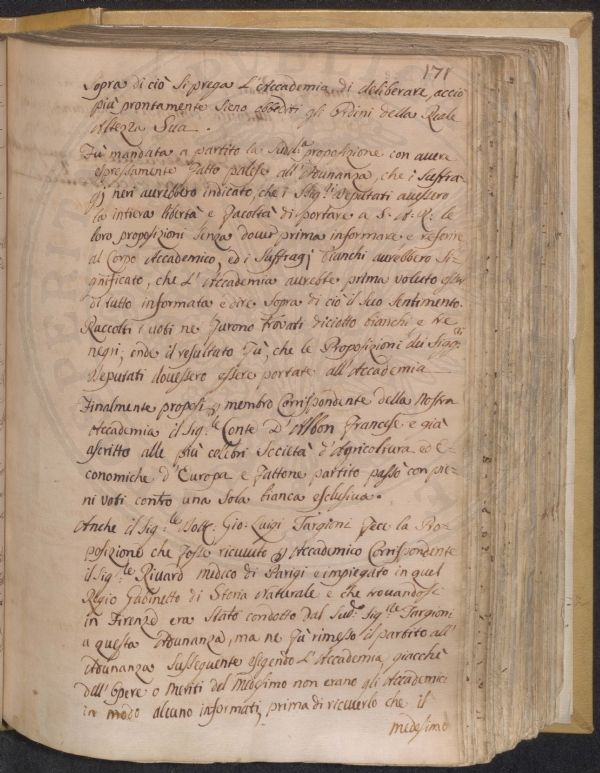 171
Sopra di ciò si prega L'Accademia di deliberare, acciò
più prontamente sieno obbediti gli Ordini della Reale
Altezza Sua.
Fù mandata a partito la Sudd.ª proposizione con avere
espressamente fatto palese all'Adunanza, che i Suffra-
gj neri avrebbero indicato, che i Sigg.ri Deputati avessero
la intiera libertà e facoltà di portare a S. A. R. le
loro proposizioni senza dover prima informare e referire
al Corpo Accademico, ed i Suffragj bianchi avrebbero Si-
gnificato, che L'Accademia avrebbe prima voluto esser
di tutto informata e dire sopra di ciò il Suo Sentimento.
Raccolti i voti ne furono trovati diciotto bianchi e tre
negri; onde il resultato fù, che le Proposizioni dei Sigg.ri
Deputati dovessero essere portate all'Accademia
Finalmente proposi p membro Corrispondente della Nostra
Accademia il Sig.re Conte D'Albon Francese e già
ascritto alle più celebri Società d'Agricoltura ed E-
conomiche d'Europa e fattone partito passò con pie-
ni voti contro una sola bianca esclusiva.
Anche il Sig.re Dott. Gio. Luigi Targioni fece la Pro-
posizione che fosse ricevuto p Accademico Corrispondente
il Sig.re Rivard medico di Parigi e impiegato in quel
Regio Gabinetto di Storia Naturale e che trovandosi
in Firenze era stato condotto dal Sud.º Sig.re Targioni
a questa Adunanza, ma ne fù rimesso il partito all'
Adunanza susseguente esigendo L'Accademia, giacchè
dell'Opere o meriti del medesimo non erano gli Accademici
in modo alcuno informati, prima di riceverlo che il
medesimo